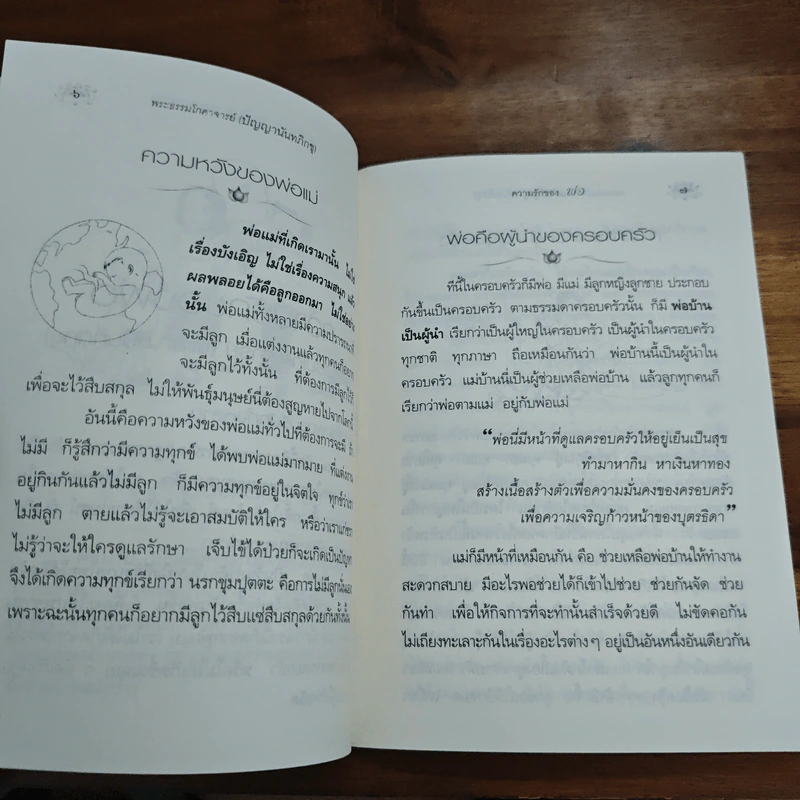 ๖
พระธรรมโกศาจารย์ (ปัญญานันทภิกขุ)
ความหวังของพ่อแม่
พ่อแม่ที่เกิดเรามานั้น ไม่ใช่
เรื่องบังเอิญ ไม่ใช่เรื่องความสนุก แล้ว
ผลพลอยได้คือลูกออกมา ไม่ใช่อย่าง
นั้น พ่อแม่ทั้งหลายมีความปรารถนาที่
จะมีลูก เมื่อแต่งงานแล้วทุกคนก็อยาก
จะมีลูกไว้ทั้งนั้น ที่ต้องการมีลูกไว้
เพื่อจะไว้สืบสกุล ไม่ให้พันธุ์มนุษย์นี่ต้องสูญหายไปจากโลกนี้
อันนี้คือความหวังของพ่อแม่ทั่วไปที่ต้องการจะมี
ไม่มี ก็รู้สึกว่ามีความทุกข์ ได้พบพ่อแม่มากมาย ที่แต่งงาน
อยู่กินกันแล้วไม่มีลูก ก็มีความทุกข์อยู่ในจิตใจ ทุกข์ว่าเรา
ไม่มีลูก ตายแล้วไม่รู้จะเอาสมบัติให้ใคร หรือว่าเราแก่ชรา
ไม่รู้ว่าจะให้ใครดูแลรักษา เจ็บไข้ได้ป่วยก็จะเกิดเป็นปัญหา
จึงได้เกิดความทุกข์เรียกว่า นรกขุมปุตตะ คือการไม่มีลูกนั่นเอง
เพราะฉะนั้นทุกคนก็อยากมีลูกไว้สืบแซ่สืบสกุลด้วยกันทั้งนั้น
ความรักของ พ่อ
๗
พ่อคือผู้นำของครอบครัว
ทีนี้ในครอบครัวก็มีพ่อ มีแม่ มีลูกหญิงลูกชาย ประกอบ
กันขึ้นเป็นครอบครัว ตามธรรมดาครอบครัวนั้น ก็มี พ่อบ้าน
เป็นผู้นำ เรียกว่าเป็นผู้ใหญ่ในครอบครัว เป็นผู้นำในครอบครัว
ทุกชาติ ทุกภาษา ถือเหมือนกันว่า พ่อบ้านนี้เป็นผู้นำใน
ครอบครัว แม่บ้านนี่เป็นผู้ช่วยเหลือพ่อบ้าน แล้วลูกทุกคนก็
เรียกว่าพ่อตามแม่ อยู่กับพ่อแม่
“พ่อนี่มีหน้าที่ดูแลครอบครัวให้อยู่เย็นเป็นสุข
ทำมาหากิน หาเงินหาทอง
สร้างเนื้อสร้างตัวเพื่อความมั่นคงของครอบครัว
เพื่อความเจริญก้าวหน้าของบุตรธิดา”
แม่ก็มีหน้าที่เหมือนกัน คือ ช่วยเหลือพ่อบ้านให้ทำงาน
สะดวกสบาย มีอะไรพอช่วยได้ก็เข้าไปช่วย ช่วยกันจัด ช่วย
กันทำ เพื่อให้กิจการที่จะทำนั้นสำเร็จด้วยดี ไม่ขัดคอกัน
ไม่เถียงทะเลาะกันในเรื่องอะไรต่างๆ อยู่เป็นอันหนึ่งอันเดียวกัน